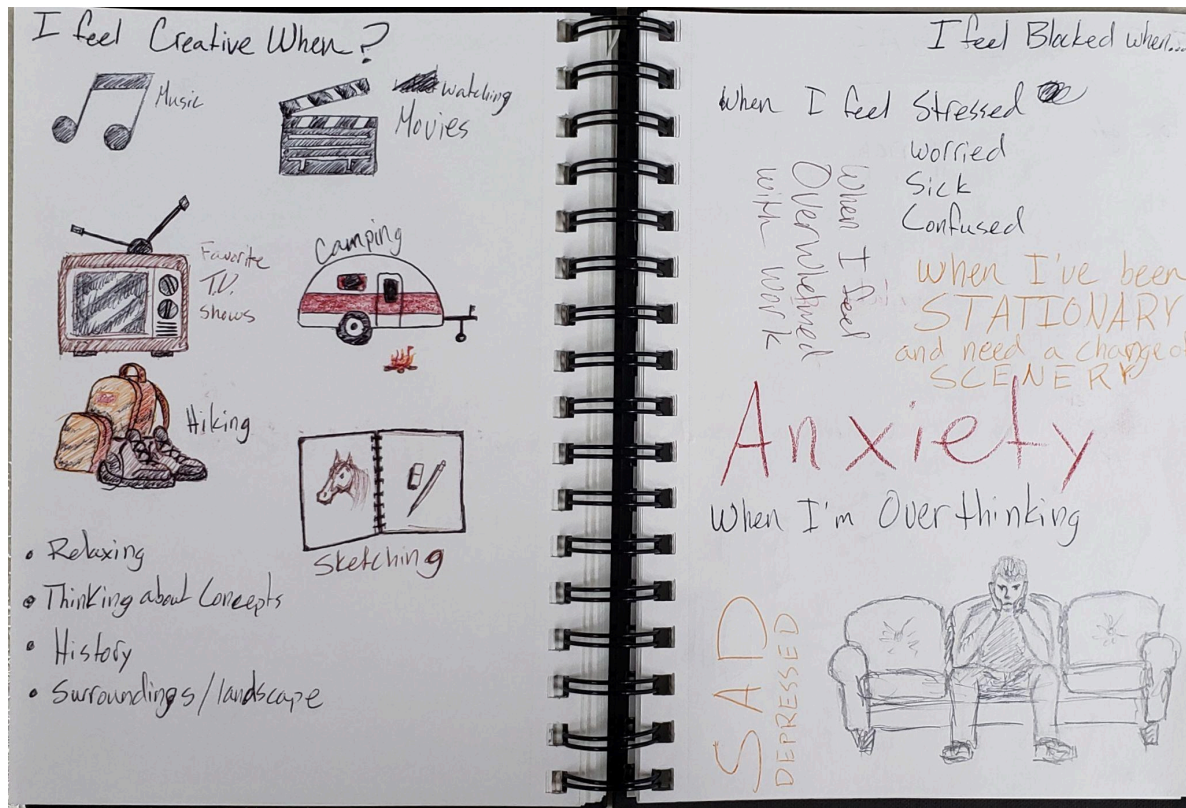 I feel Creative When?
Music
watching
Movies
Favorite
T.V.
shows
Camping
Hiking
Sketching
• Relaxing
• Thinking about Concepts
• History
• Surroundings/landscape
I feel Blocked when...
When I feel Stressed
worried
Sick
Confused
When I feel
Overwhelmed
with work
when I've been
STATIONARY
and need a change of
SCENERY
Anxiety
When I'm Overthinking
SAD
DEPRESSED